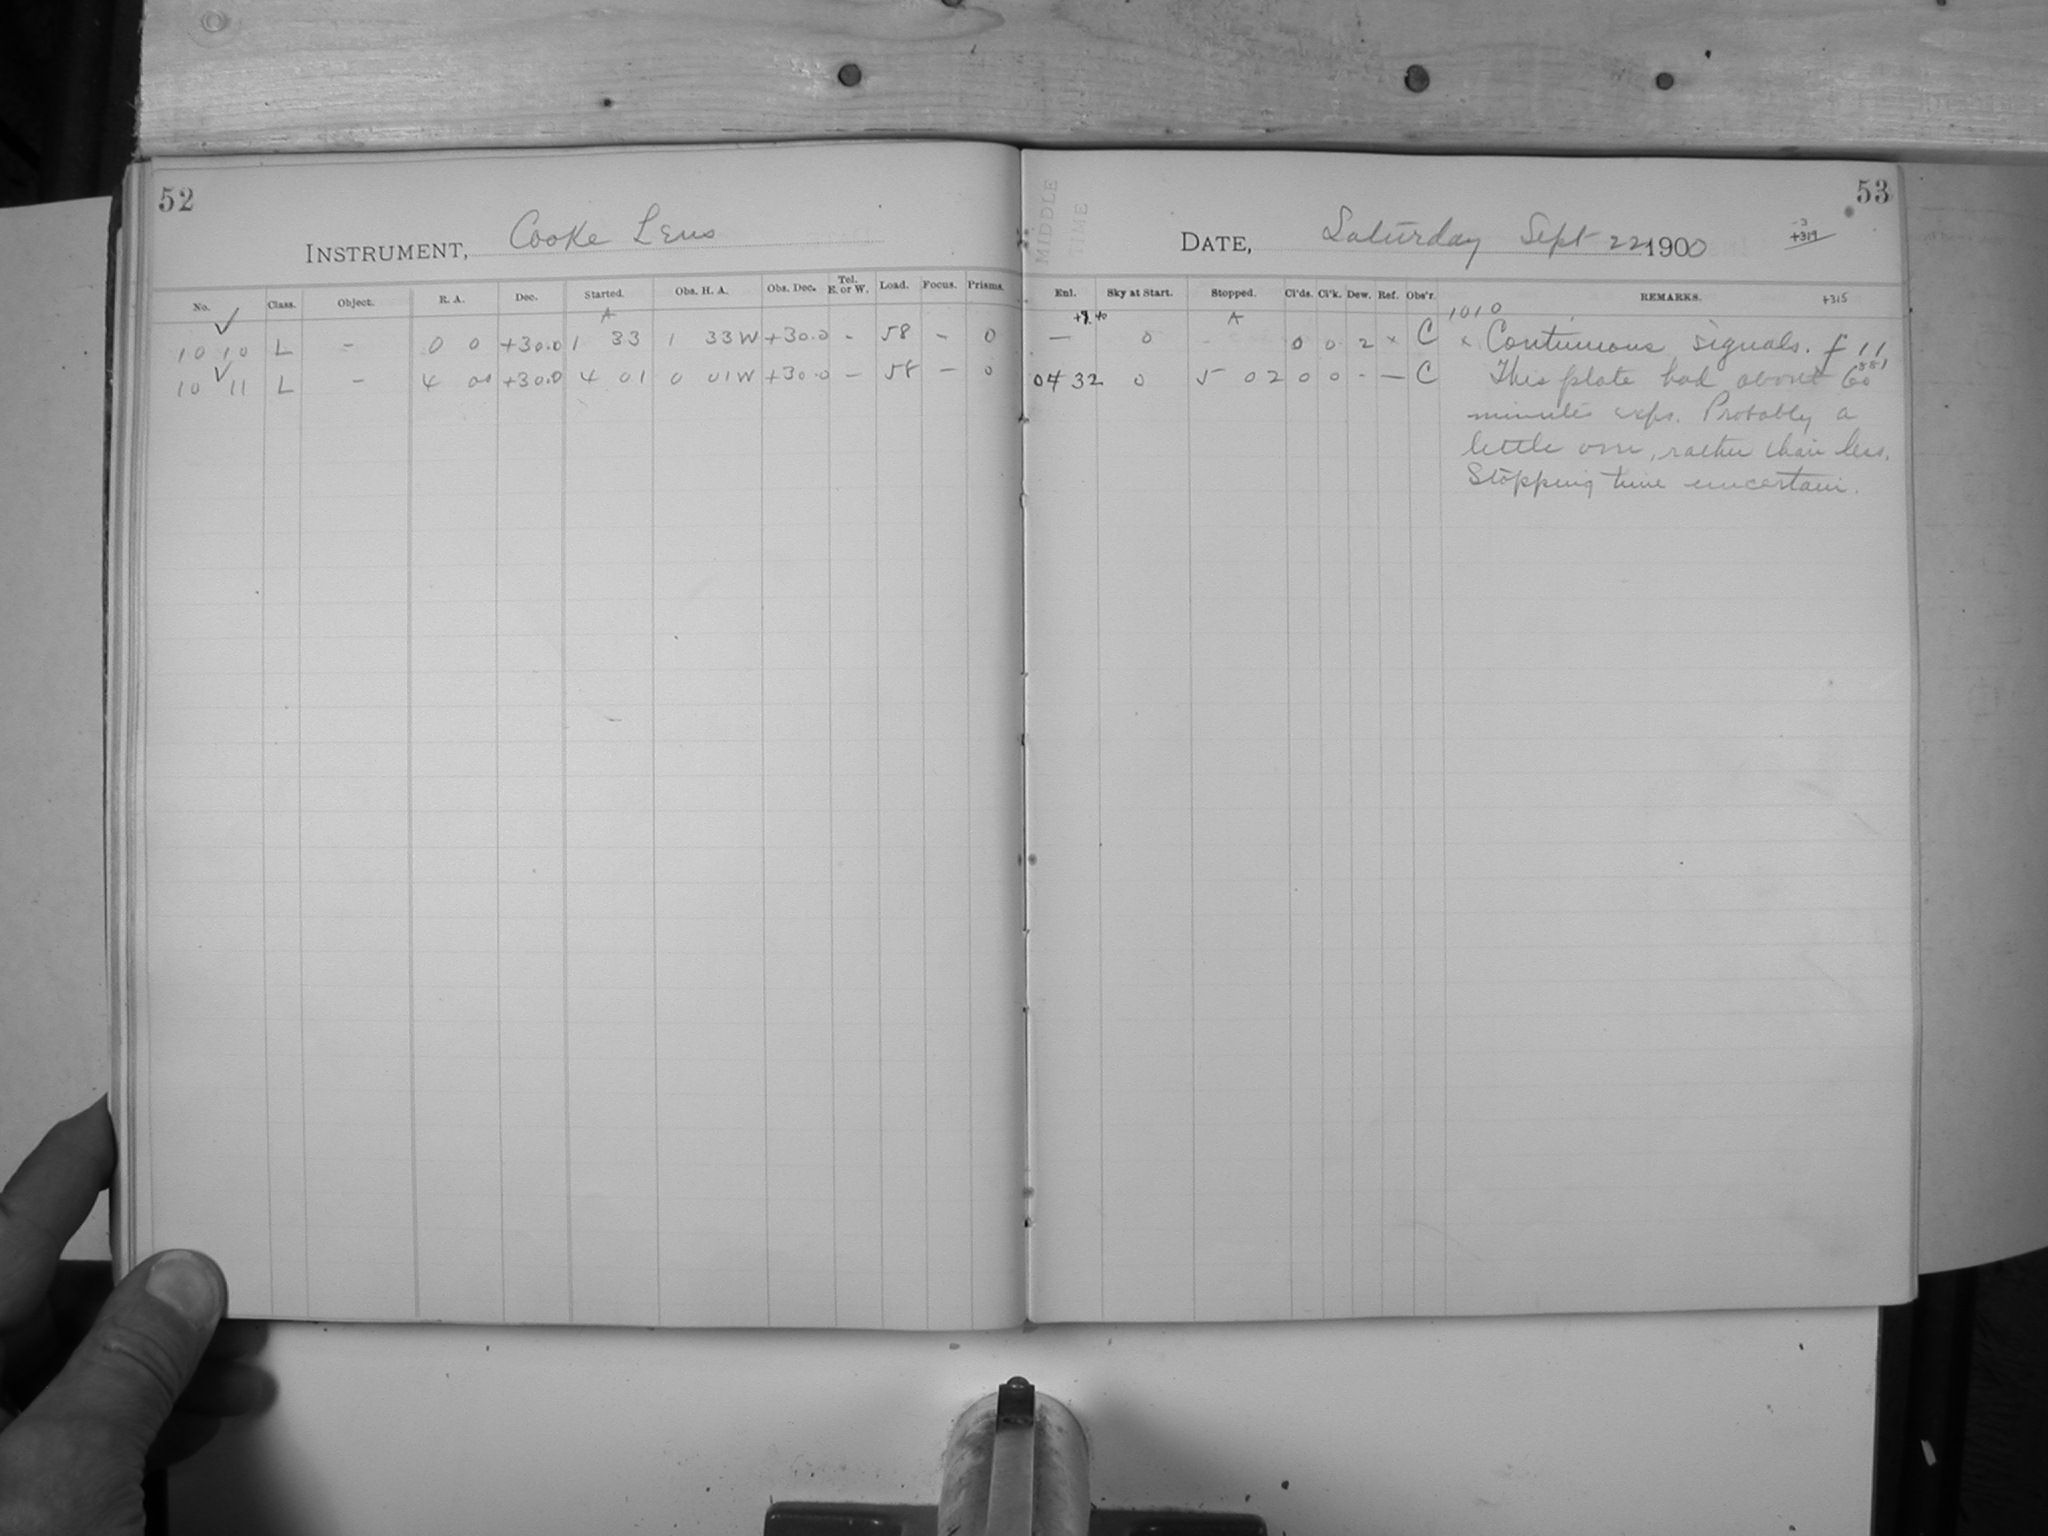 52
INSTRUMENT, Cooke Lens
No. Class. Object. R. A. Dec. Started. Obs. H. A. Obs. Dec. Tel. E. or W. Load. Focus. Prisms.
A
10 10 L - 0 0 +30.0 1 33 1 33 W +30.0 - 58 - 0
10 11 L - 4 00 +30.0 4 01 0 01 W +30.0 - 58 - 0
MIDDLE TIME
53
DATE, Saturday Sept 22 1900
-3
+319
+315
Enl. Sky at Start. Stopped. Cl'ds. Cl'k. Dew. Ref. Obs'r. REMARKS.
A 1010
— 0 - 0 0 2 x C x Continuous signals. f 11
04 32 0 5 02 0 0 - — C This plate had about 60
minutes exps. Probably a
little over, rather than less.
Stopping time uncertain.